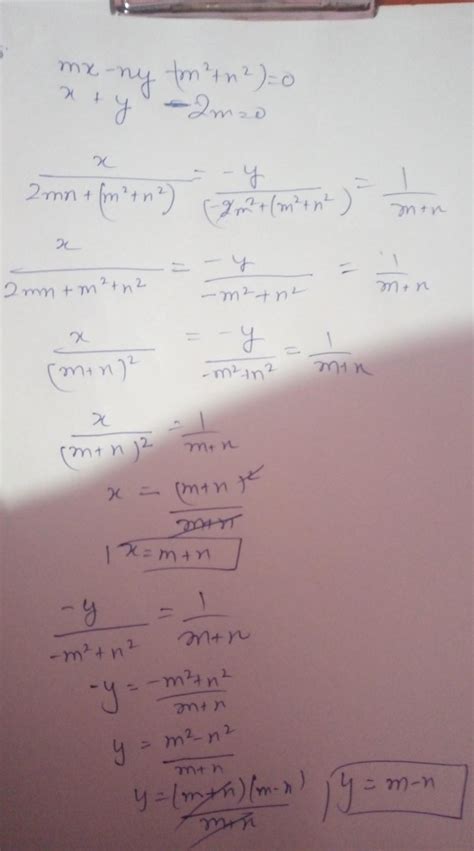 mx - ny - (m²+n²) = 0
x + y - 2m = 0
x/(2mn + (m²+n²)) = -y/(-2m² + (m²+n²)) = 1/(m+n)
x/(2mn + m² + n²) = -y/(-m² + n²) = 1/(m+n)
x/(m+n)² = -y/(-m²+n²) = 1/(m+n)
x/(m+n)² = 1/(m+n)
x = (m+n)²/(m+n)
x = m+n
-y/(-m²+n²) = 1/(m+n)
-y = (-m²+n²)/(m+n)
y = (m²-n²)/(m+n)
y = (m+n)(m-n)/(m+n), y = m-n